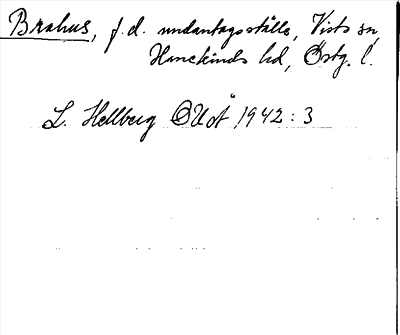 Brahus, f.d. undantagsställe, Vists sn,
Hanekinds hd, Östg. l.
L. Hellberg OUÅ 1942:3